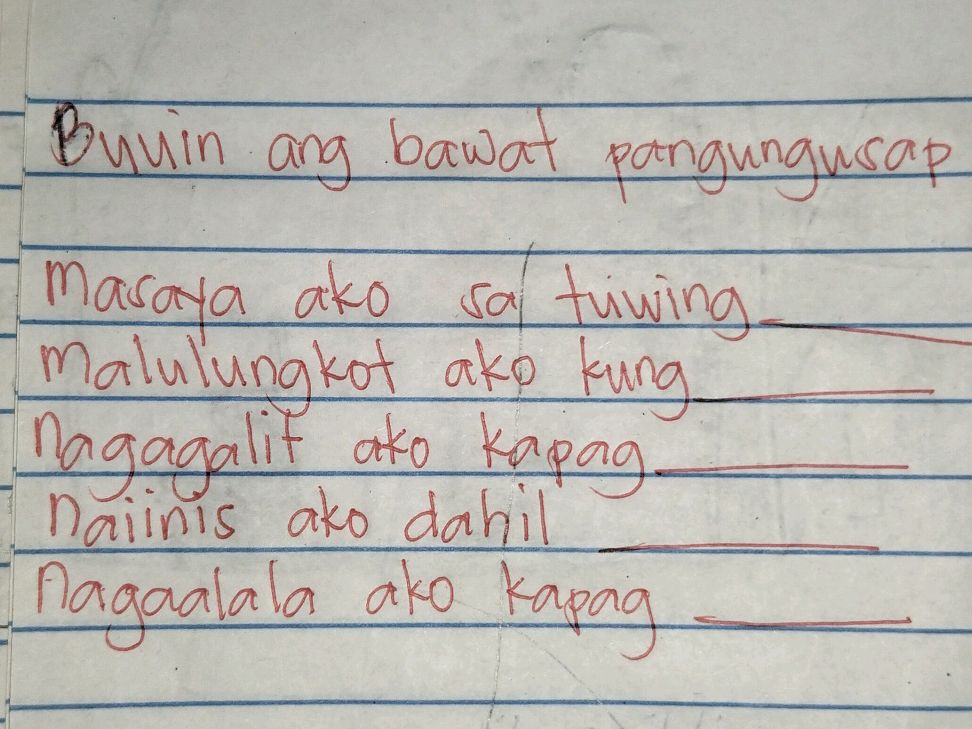 Buuin ang bawat pangungusap
Masaya ako sa tuwing ________
Malulungkot ako kung ________
Nagagalit ako kapag ________
Naiinis ako dahil ________
Nagaalala ako kapag ________